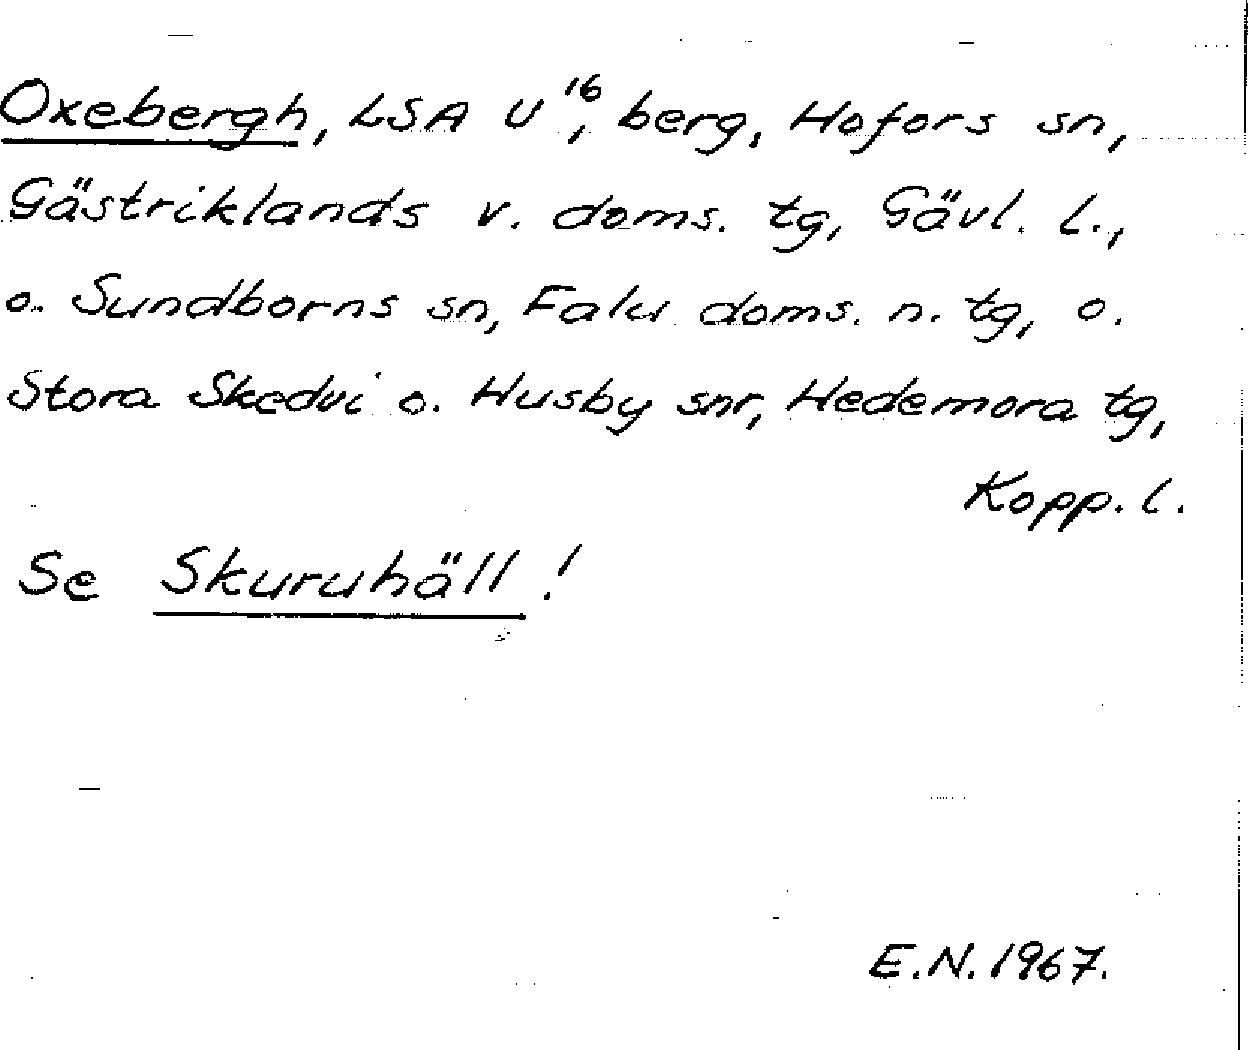 Oxebergh, LSA U¹⁶, berg, Hofors sn,
Gästriklands v. doms. tg, Gävl. l.,
o. Sundborns sn, Falu doms. n. tg, o.
Stora Skedvi o. Husby snr, Hedemora tg,
Kopp. l.
Se Skuruhäll!
E.N. 1967.